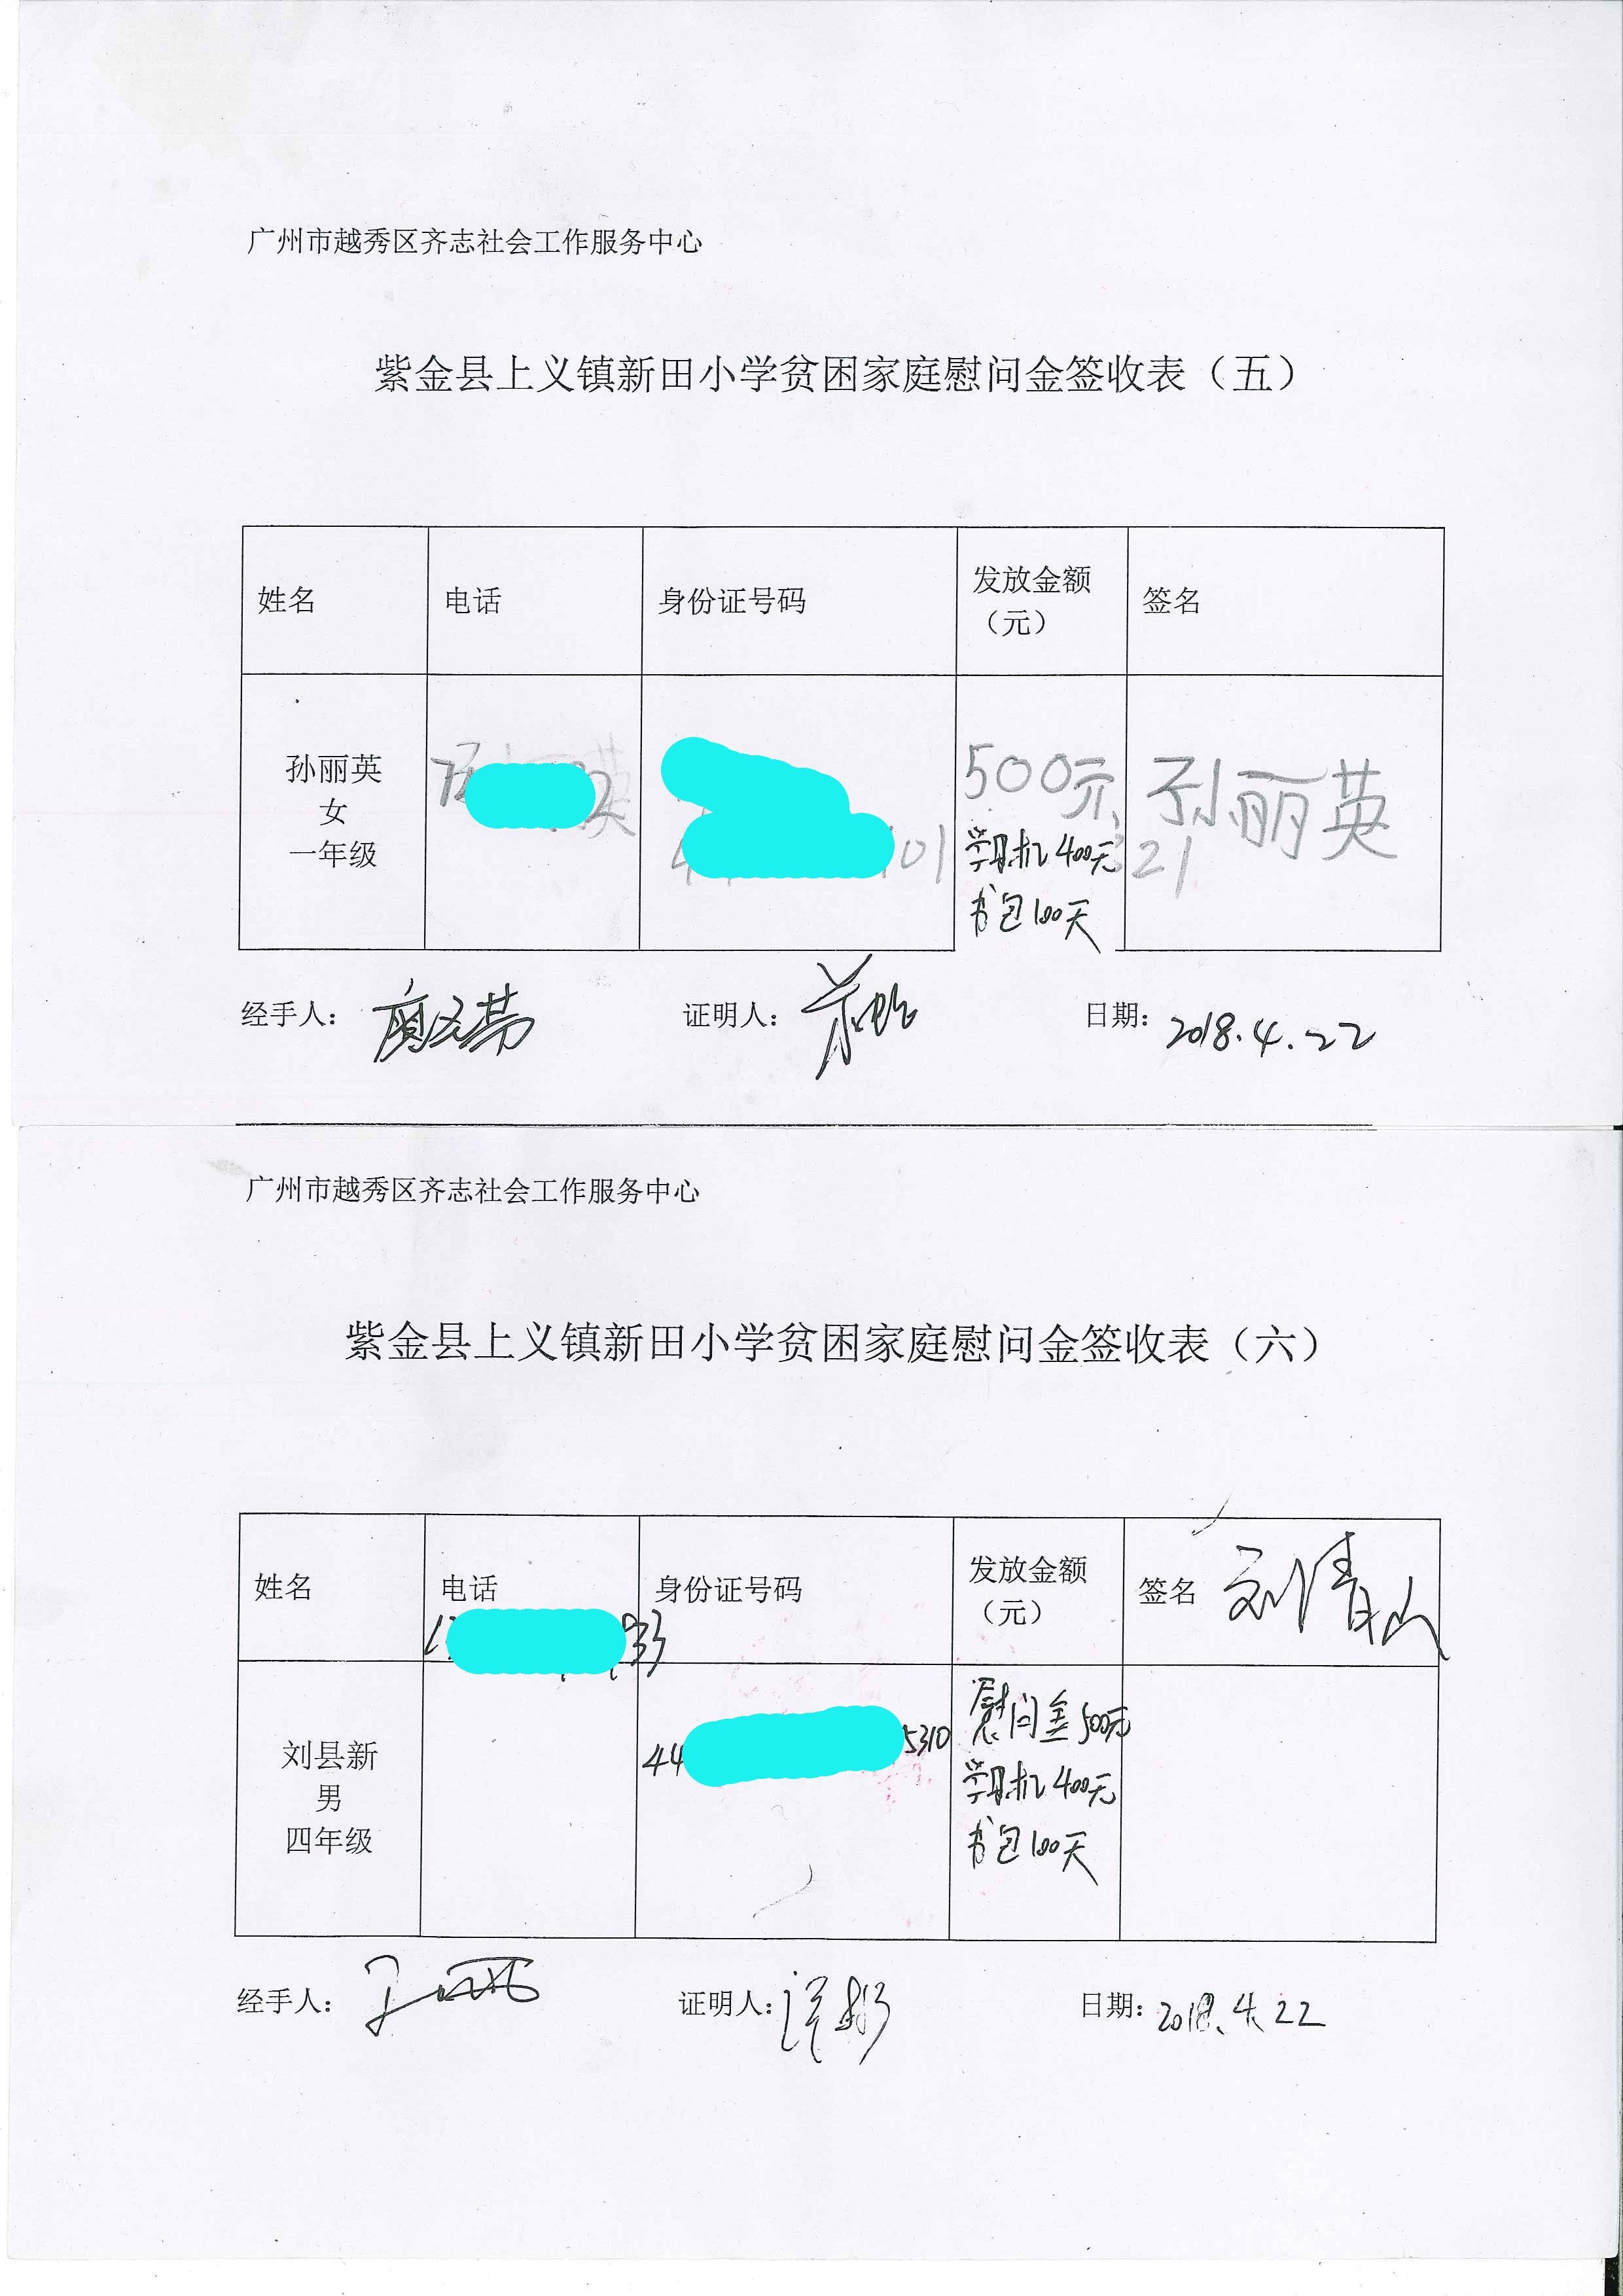 广州市越秀区齐志社会工作服务中心
紫金县上义镇新田小学贫困家庭慰问金签收表（五）
姓名
电话
身份证号码
发放金额
（元）
签名
孙丽英
女
一年级
500元
学习机400元
书包100元
孙丽英
21
经手人：
证明人：
日期：2018.4.22
广州市越秀区齐志社会工作服务中心
紫金县上义镇新田小学贫困家庭慰问金签收表（六）
姓名
电话
身份证号码
发放金额
（元）
签名 刘清山
33
刘县新
男
四年级
44 5310
慰问金500元
学习机400元
书包100元
经手人：
证明人：
日期：2018.4.22